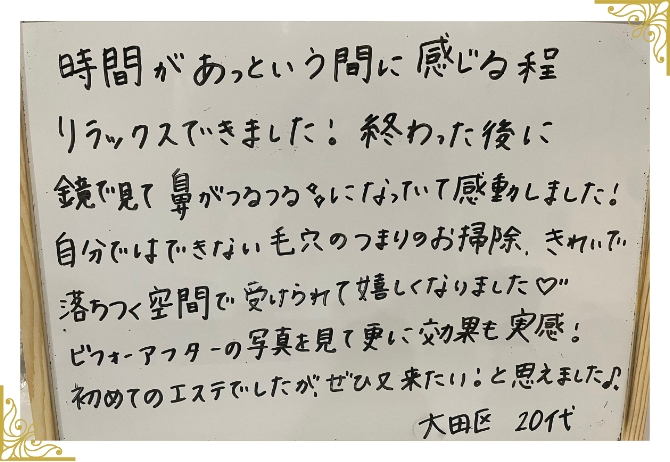 時間があっという間に感じる程
リラックスできました！終わった後に
鏡で見て鼻がつるつる✨になっていて感動しました！
自分ではできない毛穴のつまりのお掃除、きれいで
落ちつく空間で受けられて嬉しくなりました♡
ビフォーアフターの写真を見て更に効果も実感！
初めてのエステでしたが、ぜひ又来たい！と思えました♪
大田区 20代